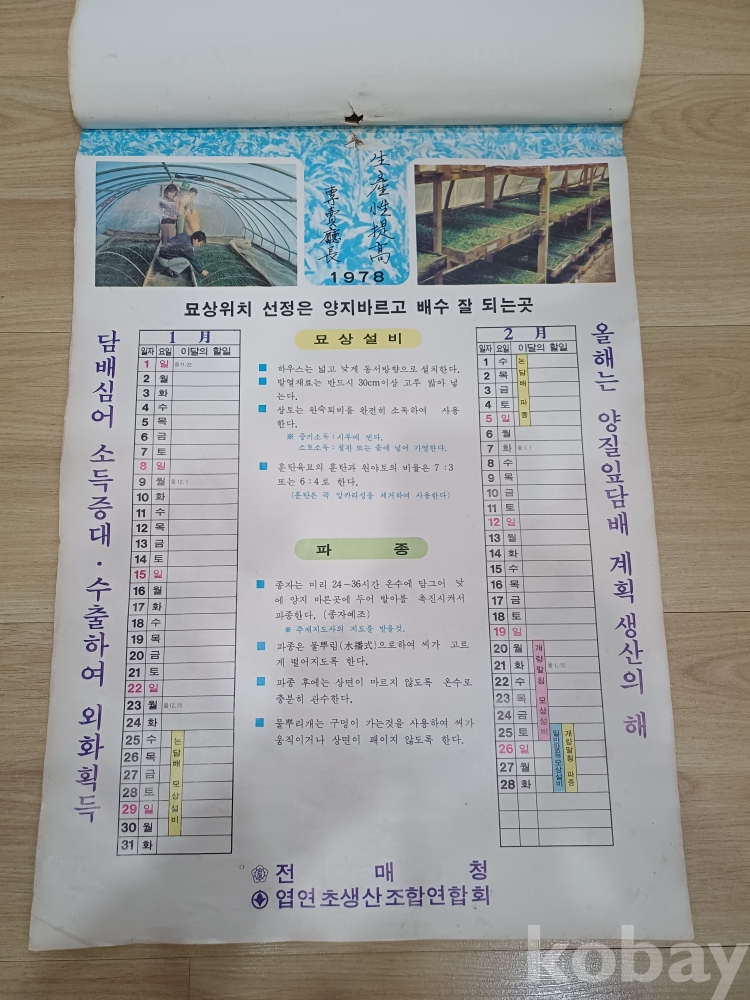 生産性提高
專賣廳長
1978
묘상위치 선정은 양지바르고 배수 잘 되는곳
담배심어 소득증대·수출하여 외화획득
1 月
일자 요일 이달의 할일
1 일 음11.22
2 월
3 화
4 수
5 목
6 금
7 토
8 일
9 월 음12.1
10 화
11 수
12 목
13 금
14 토
15 일
16 월
17 화
18 수
19 목
20 금
21 토
22 일
23 월 음12.15
24 화
25 수
26 목
27 금
28 토
29 일
30 월
31 화
논담배 묘상설비
묘상설비
하우스는 넓고 낮게 동서방향으로 설치한다.
발열재료는 반드시 30cm이상 고루 밟아 넣
는다.
상토는 완숙퇴비를 완전히 소독하여 사용
한다.
※ 증기소독 : 시루에 찐다.
소토소독 : 철판 또는 솥에 넣어 가열한다.
훈탄육묘의 훈탄과 원야토의 비율은 7 : 3
또는 6 : 4로 한다.
(훈탄은 꼭 알카리성을 제거하여 사용한다)
파 종
종자는 미리 24~36시간 온수에 담그어 낮
에 양지 바른곳에 두어 발아를 촉진시켜서
파종한다. (종자예조)
※ 주재지도사의 지도를 받을것.
파종은 물뿌림(水播式)으로하여 씨가 고르
게 떨어지도록 한다.
파종 후에는 상면이 마르지 않도록 온수로
충분히 관수한다.
물뿌리개는 구멍이 가는것을 사용하여 씨가
움직이거나 상면이 페이지 않도록 한다.
2 月
일자 요일 이달의 할일
1 수
2 목
3 금
4 토
5 일
6 월
7 화 음1.1
8 수
9 목
10 금
11 토
12 일
13 월
14 화
15 수
16 목
17 금
18 토
19 일
20 월
21 화 음1.15
22 수
23 목
24 금
25 토
26 일
27 월
28 화
논담배 파종
개량말칭 묘상설비
개량말칭 파종
올해는 양질잎담배 계획생산의 해
전 매 청
엽연초생산조합연합회
kobay